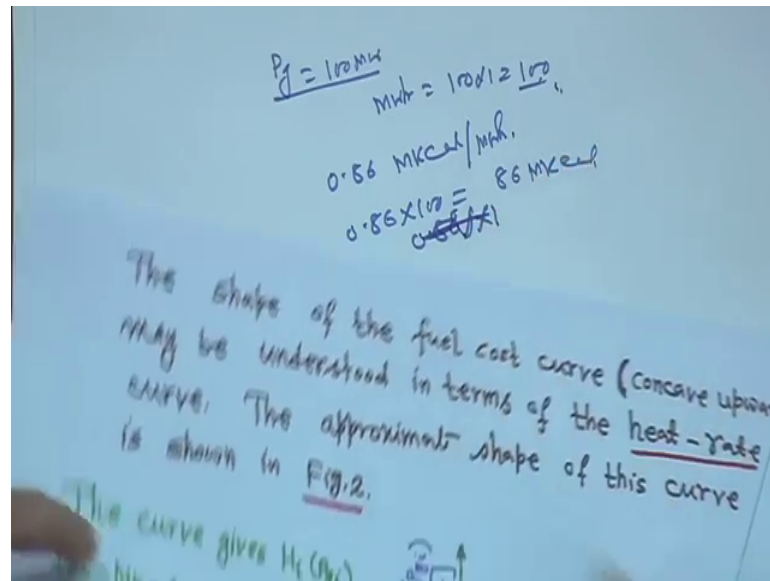 Pg = 100 MW
mwh = 100x1 = 100
0.86 MKCal/mwh.
0.86 X 100 = 86 MKCal
The shape of the fuel cost curve (concave upwa
may be understood in terms of the heat-rate
curve. The approximate shape of this curve
is shown in Fig.2.
The curve gives Hi(Pgi)